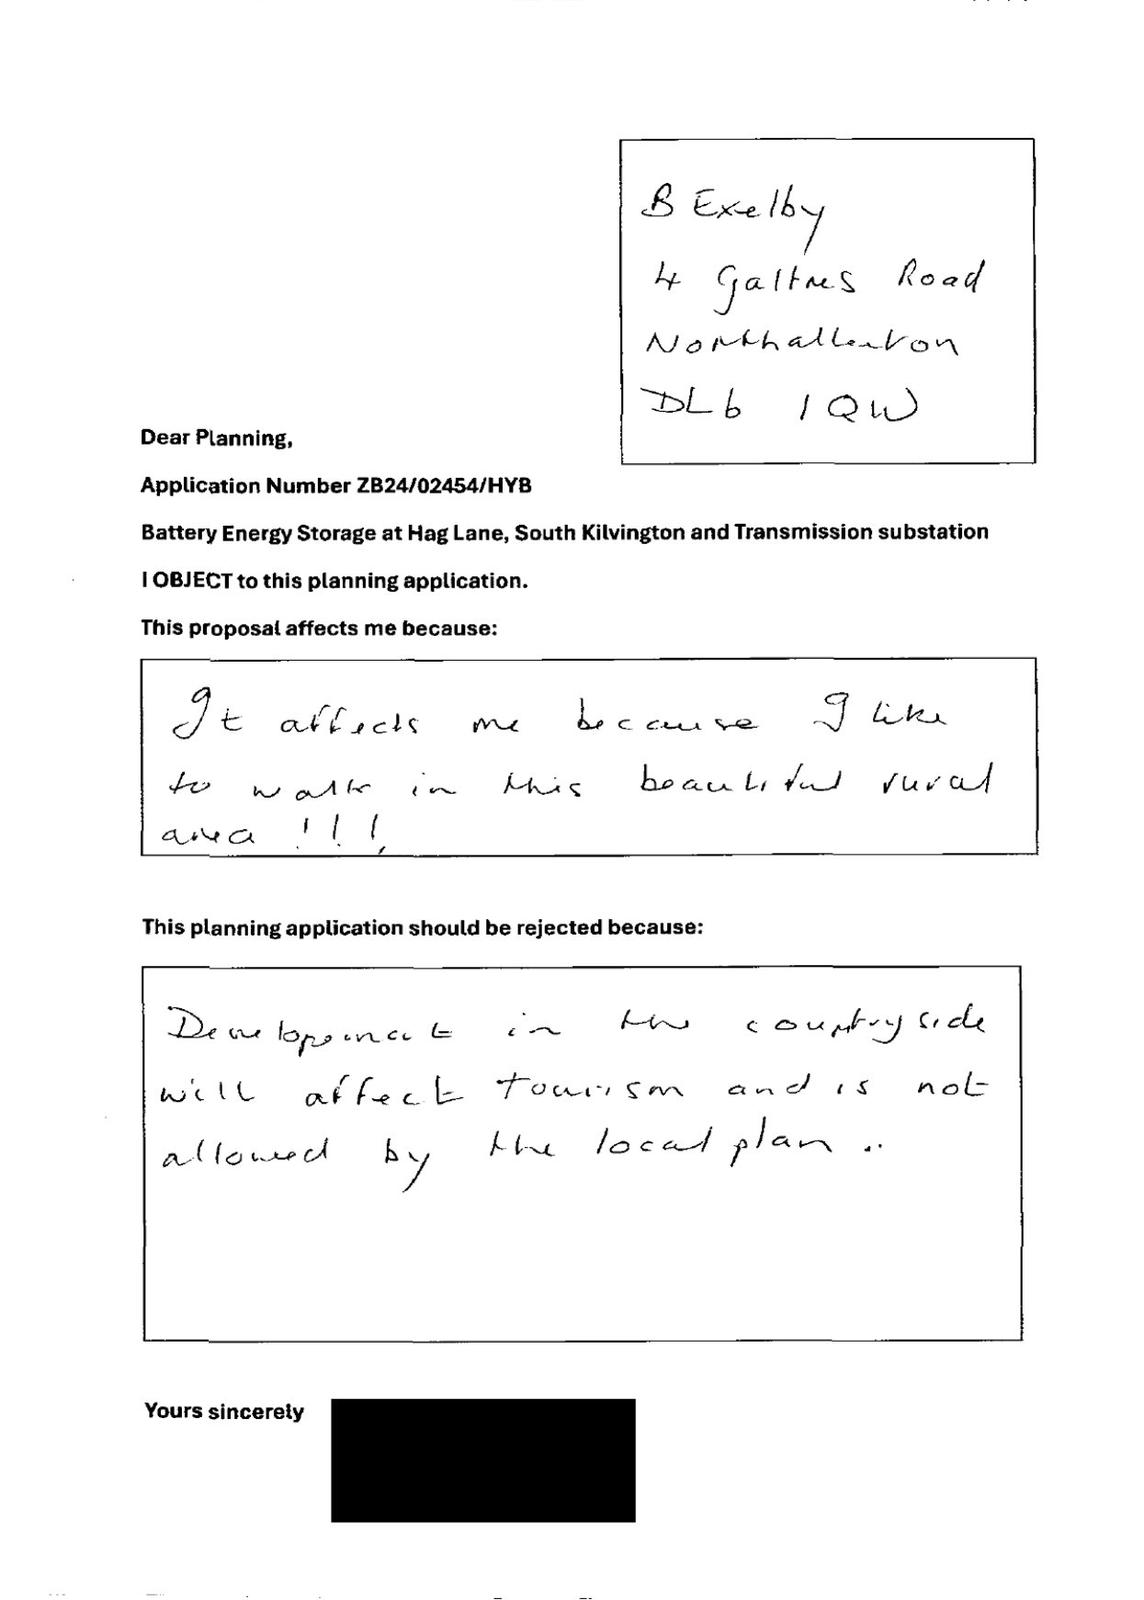 B Exelby
4 Galtres Road
Northallerton
DL6 1QW
Dear Planning,
Application Number ZB24/02454/HYB
Battery Energy Storage at Hag Lane, South Kilvington and Transmission substation
I OBJECT to this planning application.
This proposal affects me because:
It affects me because I like
to walk in this beautiful rural
area !!!
This planning application should be rejected because:
Development in the countryside
will affect tourism and is not
allowed by the local plan ..
Yours sincerely